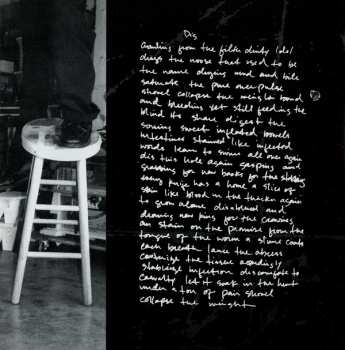 Dis
Crawling from the filth dirty idol
drags the noose that used to be
the name dragging mud and bile
saturate the pore over pulse
shovel collapse the weight bound
and bleeding yet still feeding the
blind its share digest the
souring sweet inflated bowels
intestines stained like infected
words learn to swim all over again
dis this hole again gasping and
grasping for new hooks for the
prize has a home a slice of
skin like blood in the thicker again
to grow alone disabused and
drawing new ring for the craving
stain on the premise from the
tongue of the worm a slime coats
each breath lance the abscess
cauterize the tissue accordingly
stabilize infection discomforts to
casualty let it soak in the heat
under a ton of pain shovel
collapse the weight